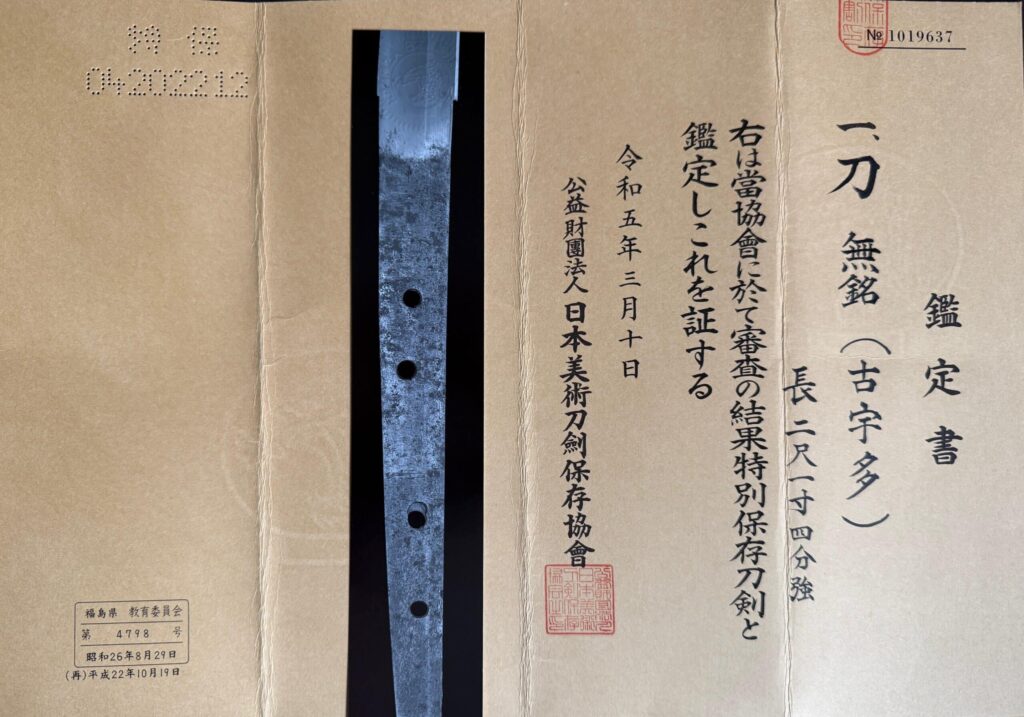 №1019637
鑑定書
一、刀 無銘(古宇多)
長 二尺一寸四分強
右は當協會に於て審査の結果特別保存刀剣と
鑑定しこれを証する
令和五年三月十日
公益財團法人 日本美術刀劍保存協會
特保
04202212
福島県 教育委員会
第 4798 号
昭和26年8月29日
(再)平成22年10月19日